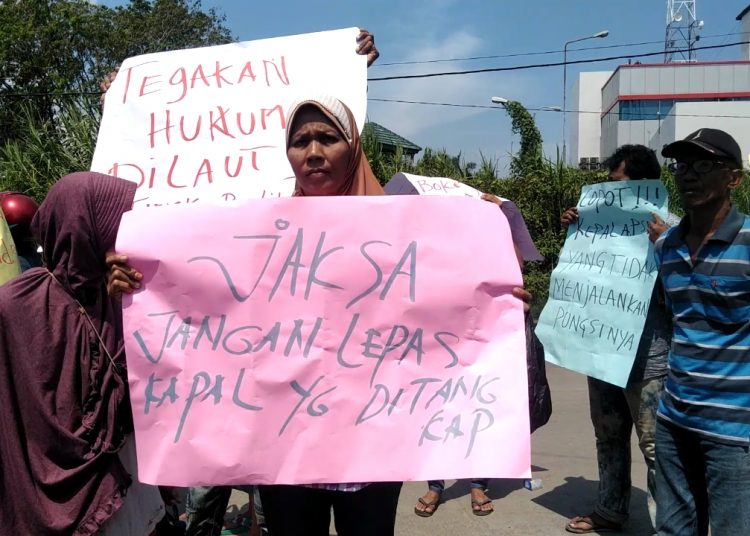 TEGAKAN
HUKUM
DILAUT
JAKSA
JANGAN LEPAS
KAPAL YG DITANG
KAP
COPOT!!!
KEPALA PSD
YANG TIDAK
MENJALANKAN
PUNGSINYA